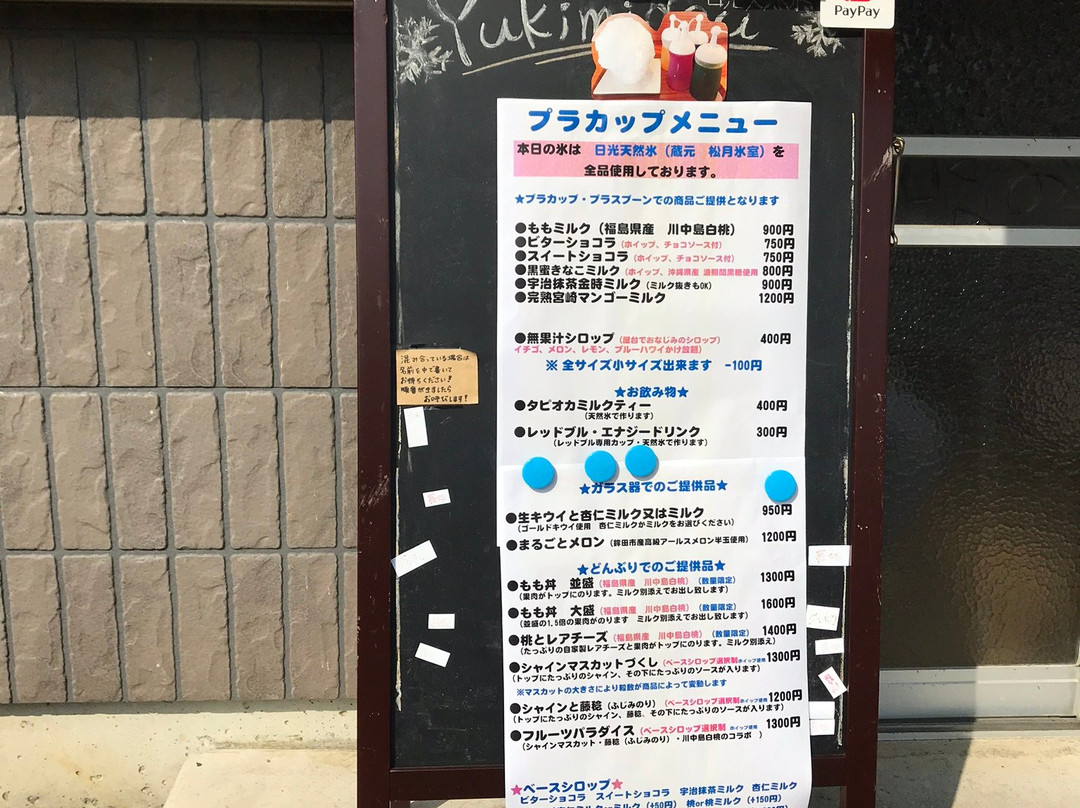 PayPay
プラカップメニュー
本日の氷は 日光天然氷（蔵元 松月氷室）を
全品使用しております。
★プラカップ・プラスプーンでの商品ご提供となります
●ももミルク（福島県産 川中島白桃） 900円
●ビターショコラ（ホイップ、チョコソース付） 750円
●スイートショコラ（ホイップ、チョコソース付） 750円
●黒蜜きなこミルク（ホイップ、沖縄県産 波照間黒糖使用 800円
●宇治抹茶金時ミルク（ミルク抜きもOK） 900円
●完熟宮崎マンゴーミルク 1200円
●無果汁シロップ（屋台でおなじみのシロップ） 400円
イチゴ、メロン、レモン、ブルーハワイかけ放題）
※ 全サイズ小サイズ出来ます -100円
★お飲み物★
●タピオカミルクティー 400円
（天然氷で作ります）
●レッドブル・エナジードリンク 300円
（レッドブル専用カップ・天然氷で作ります）
★ガラス器でのご提供品★
●生キウイと杏仁ミルク又はミルク 950円
（ゴールドキウイ使用 杏仁ミルクかミルクをお選びください）
●まるごとメロン（鉾田市産高級アールスメロン半玉使用） 1200円
★どんぶりでのご提供品★
●もも丼 並盛（福島県産 川中島白桃）（数量限定） 1300円
（果肉がトップにのります。ミルク別添えでお出し致します）
●もも丼 大盛（福島県産 川中島白桃）（数量限定） 1600円
（並盛の1.5倍の果肉がのります ミルク別添えでお出し致します）
●桃とレアチーズ（福島県産 川中島白桃）（数量限定） 1400円
（たっぷりの自家製レアチーズと果肉がトップにのります。ミルク別添え）
●シャインマスカットづくし（ベースシロップ選択制ホイップ使用 1300円
（トップにたっぷりのシャイン、その下にたっぷりのソースが入ります）
※マスカットの大きさにより粒数が商品によって変動します
●シャインと藤稔（ふじみのり）（ベースシロップ選択制ホイップ使用 1200円
（トップにたっぷりのシャイン、藤稔、その下にたっぷりのソースが入ります）
●フルーツパラダイス（ベースシロップ選択制 ホイップ使用） 1300円
（シャインマスカット・藤稔（ふじみのり）・川中島白桃のコラボ ）
★ベースシロップ★
ビターショコラ スイートショコラ 宇治抹茶ミルク 杏仁ミルク
（+50円） 桃or桃ミルク（+150円）
混み合っている場合は
名前を中で書いて
お待ちください!
順番がきましたら
お呼びします!